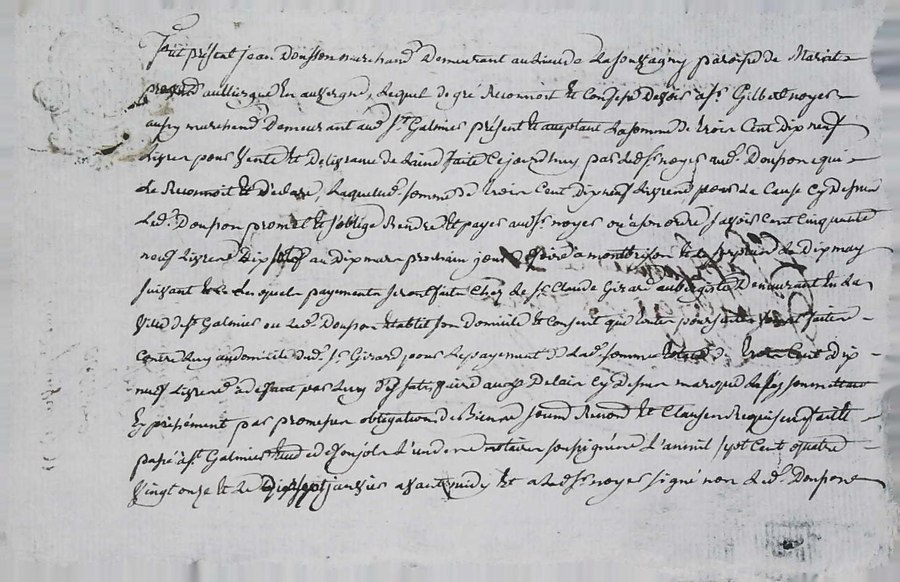 fut présent jean Dousson marchand Demeurant au lieu de Lasouvagny paroisse de
aulliergue En auvergne, Lequel de gré Reconnoit Et Confesse Devoir à sr. Gilbert noyer
marchand Demeurant aud. st. Galmier présent Et acceptant La somme de trois Cent Dix neuf
Livres pour Vente Et Délivrance de faite Cejourd'huy par Led. sr. noyer aud. Dousson qui
Le Reconnoit Et Declare, Laquelle d. somme de trois Cent Dix neuf Livres, pour La Cause Cy Dessus
Led. Dousson promet Et s'oblige Rendre Et payer aud. sr. noyer ou à son ordre savoir Cent Cinquante
neuf Livres Dix au Dix mars prochain jour de foire a montbrison Et Le surplus Le Dix may
suivant Lesquels payements seront faits Chez Le sr. Claude Girard aubergiste Demeurant En La
Ville de st. Galmier ou Led. Dousson Etablit son Domicile Et Consent que toutes poursuites soient faites
Contre Luy au domicile dud. sr. Girard pour Le payement de Lad. somme de trois Cent Dix
neuf Livres a deffaut par Luy D'y satisfaire aux Délais Cy Dessus marqués
Expressément par promesses obligation de Biens Renond Et Clauses Requises faitte
passé à st. Galmier Etude de L'un des notaires soussignés L'an mil sept Cent quatre
Vingt onze Et Le Dix sept janvier avant midy Et a Led. sr. noyer signé non Led. Dousson